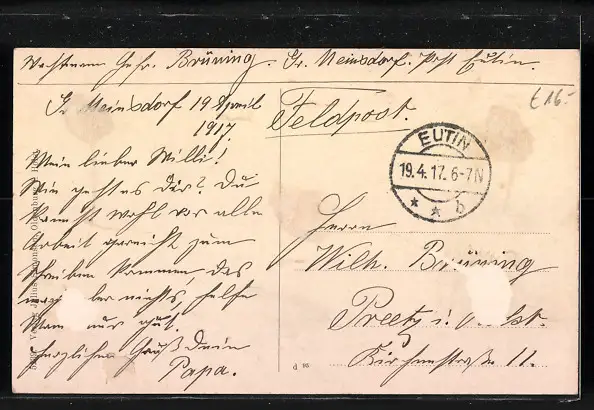 Wachtmann Gefr. Brüning. Gr. Meinsdorf. Post Eutin.
€ 16.-
Gr. Meinsdorf 19 April
1917.
Feldpost.
EUTIN
19.4.17. 6-7N
* * b
Mein lieber Willi!
Wie geht es dir? Du
kannst wohl vor alle
Arbeit garnicht zum
schreiben kommen, das
aber nichts, helfe
Mama nur gut.
Herzlichen Gruß Dein
Papa.
Herrn
Wilh. Brüning
Preetz i.
Kirchenstraße 11.
d 95